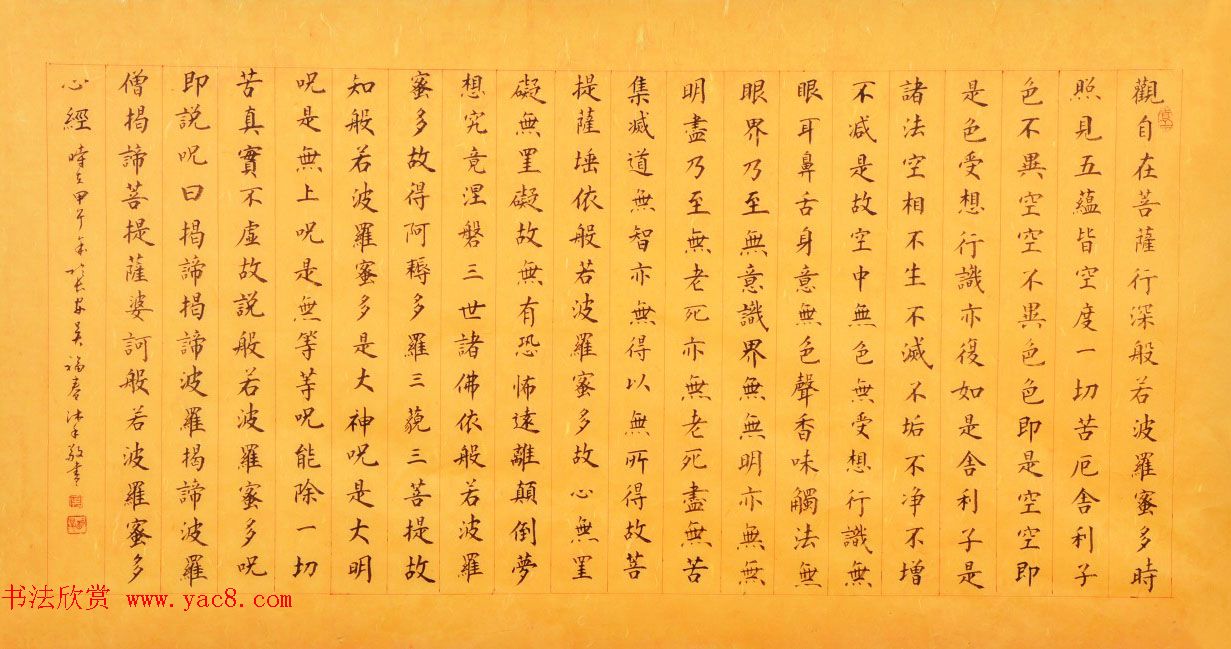 觀自在菩薩行深般若波羅蜜多時
照見五蘊皆空度一切苦厄舍利子
色不異空空不異色色即是空空即
是色受想行識亦復如是舍利子是
諸法空相不生不滅不垢不净不增
不减是故空中無色無受想行識無
眼耳鼻舌身意無色聲香味觸法無
眼界乃至無意識界無無明亦無無
明盡乃至無老死亦無老死盡無苦
集滅道無智亦無得以無所得故菩
提薩埵依般若波羅蜜多故心無罣
礙無罣礙故無有恐怖遠離顛倒夢
想究竟涅磐三世諸佛依般若波羅
蜜多故得阿耨多羅三藐三菩提故
知般若波羅蜜多是大神呪是大明
呪是無上呪是無等等呪能除一切
苦真實不虛故說般若波羅蜜多呪
即說呪曰揭諦揭諦波羅揭諦波羅
僧揭諦菩提薩婆訶般若波羅蜜多
心經 時在甲午年於長安吳福春沐手敬書
书法欣赏 www.yac8.com